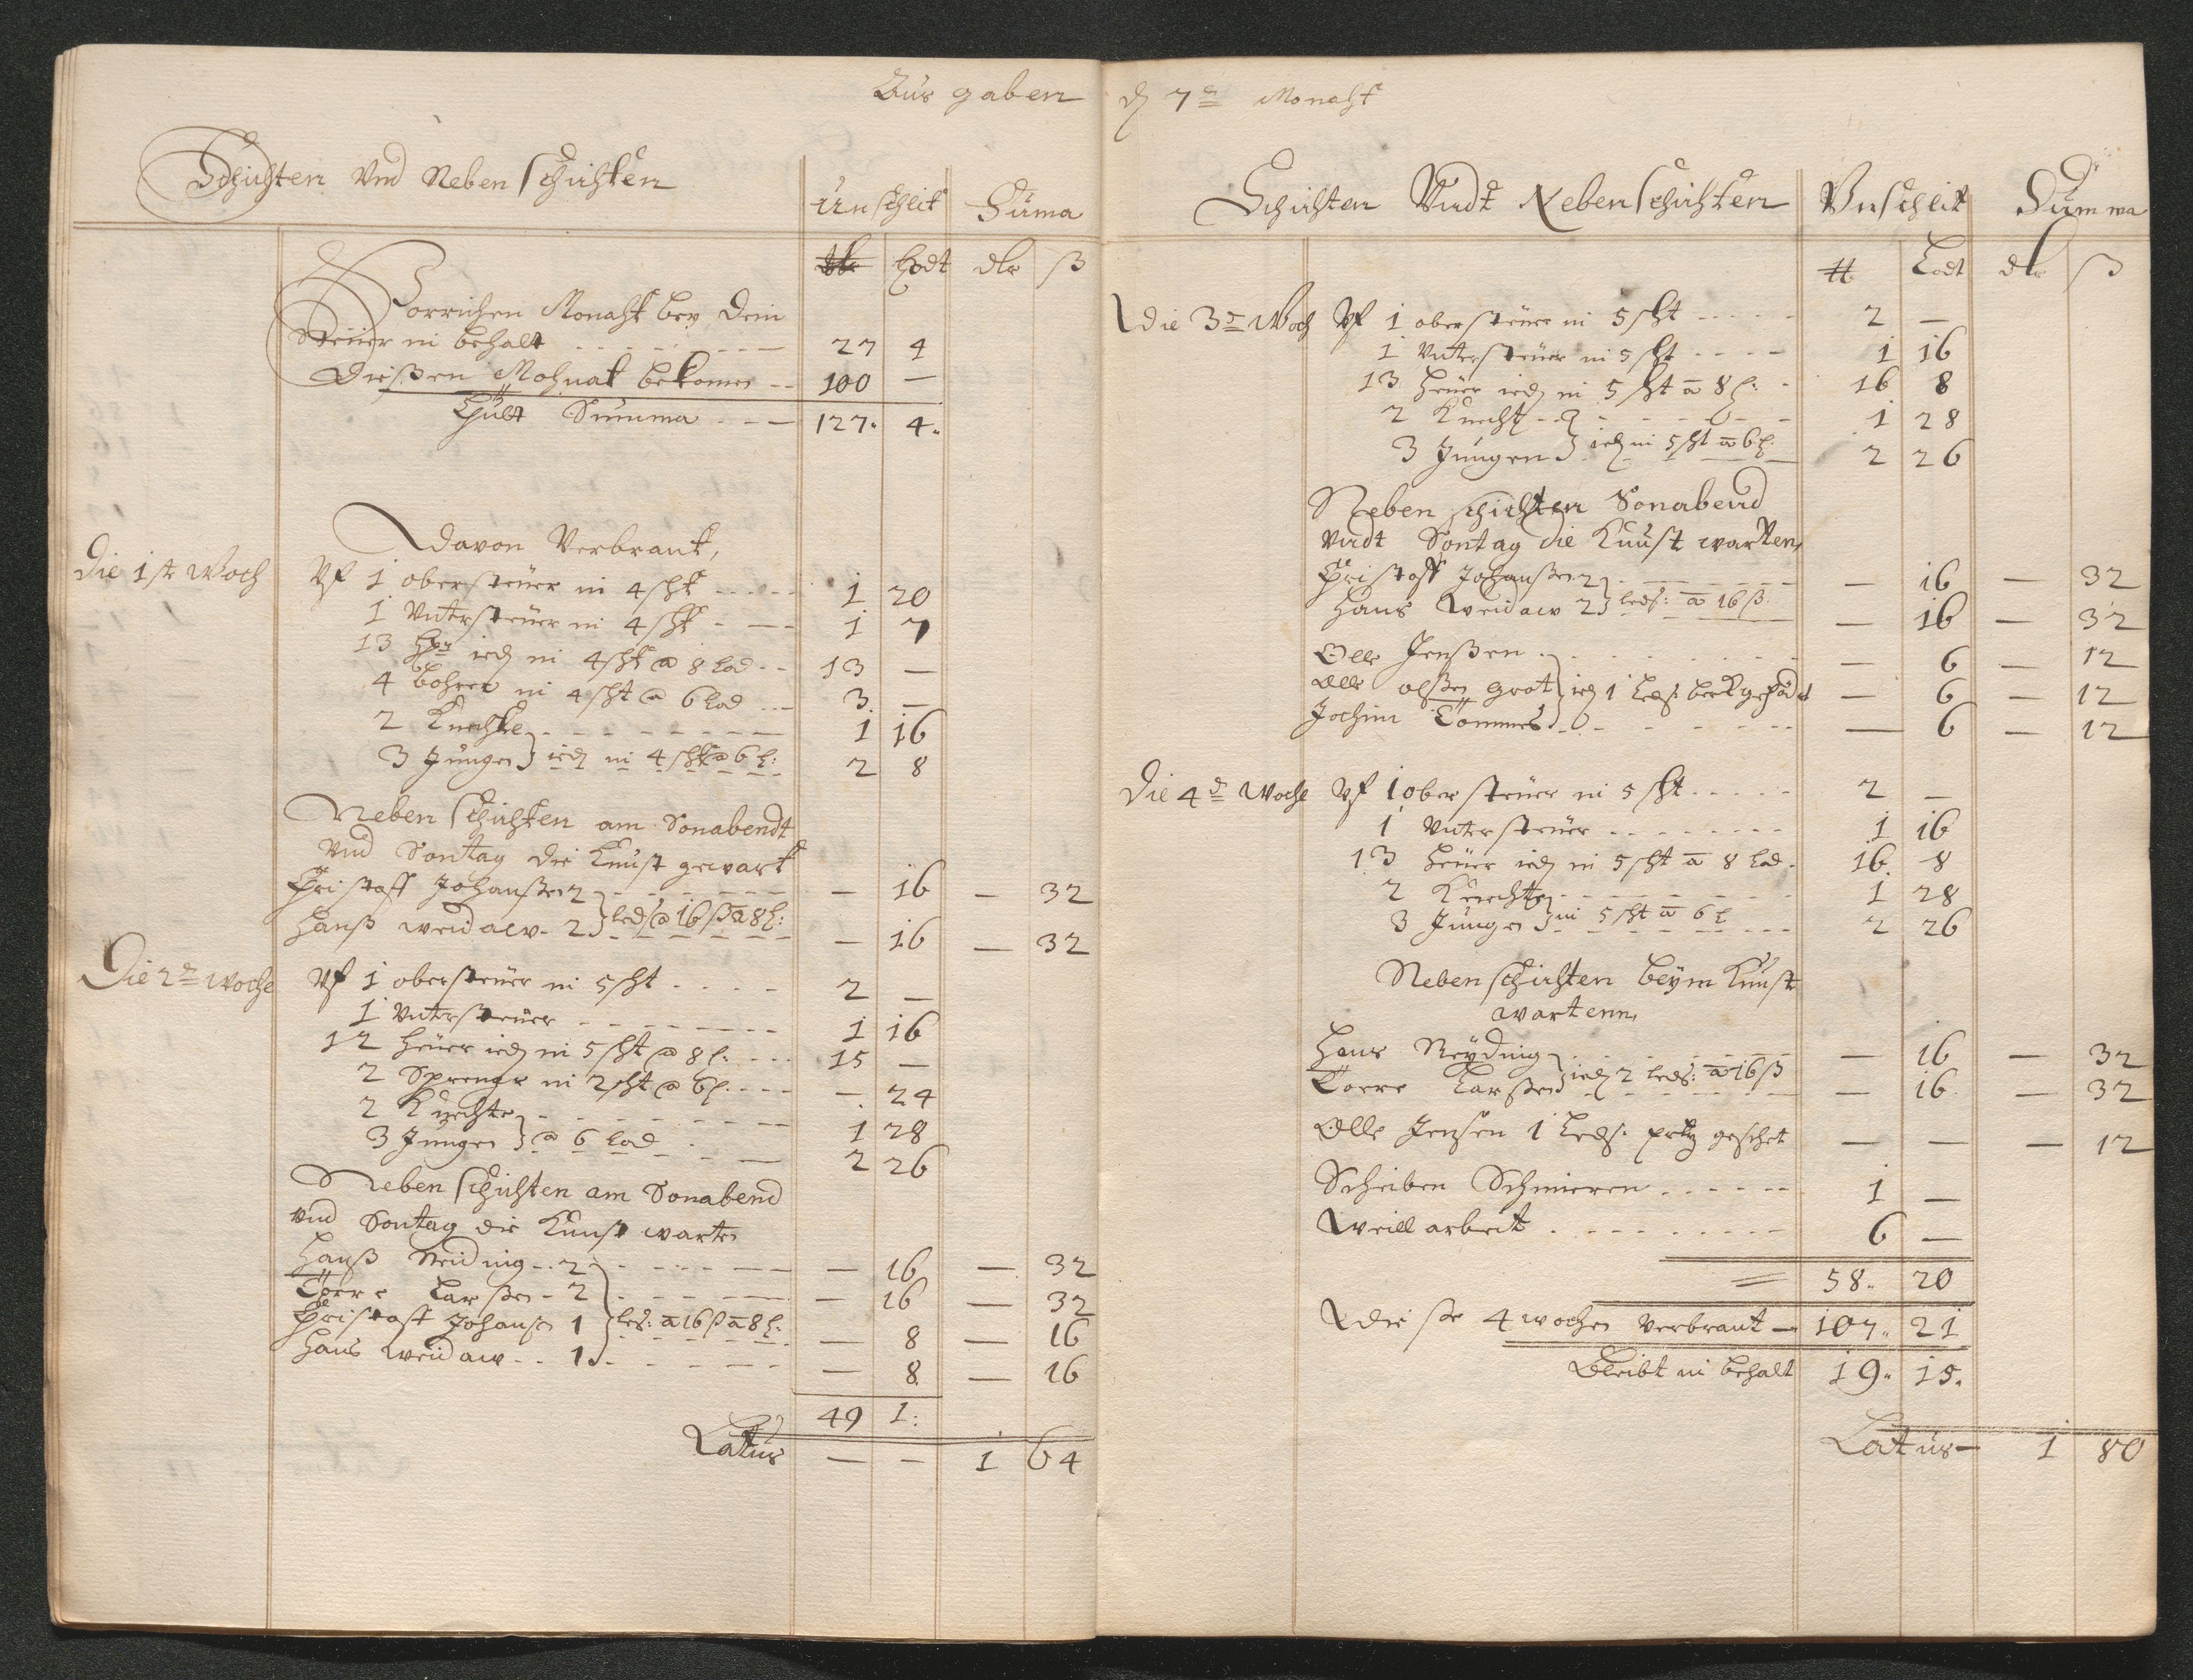 Aus gaben
Schichten Vnd Neben schichten
Unschlit Suma
Lodt dlr ß
Vorrichen Monaht bey Dem
Steüer in behalt 27 4
Dießen Mohnat bekomen 100 —
Thutt Summa 127. 4.
Davon Verbraut,
Die 1st Woch Vf 1 obersteüer in 4 sht 1 20
1 Vntersteüer in 4 sht 1 7
13 iedr in 4 sht @ 8 Lod 13 —
4 bohrer in 4 sht @ 6 Lod 3 —
2 Knechte 1 16
3 Jungen iedr in 4 sht @ 6 l: 2 8
Neben schichten am Sonabendt
vnd Sontag die Kunst gewart
Christoff Johanßen 2 — 16 — 32
Hanß weidaw - 2 leds @ 16 ß a 8 l: — 16 — 32
Die 2te woche Vf 1 obersteüer in 5 sht 2 —
1 Vntersteüer 1 16
12 Heüer iedr in 5 sht @ 8 l: 15 —
2 Sprenger in 2 sht @ 6 l. — 24
2 Knechte 1 28
3 Jungen @ 6 Lod 2 26
Neben schichten am Sonabend
vnd Sontag die Kunst warten
Hanß Neiding - 2 — 16 — 32
Töere Larßen - 2 — 16 — 32
Christoff Johansen 1 leds: a 16 ß a 8 l: — 8 — 16
Hans weidaw - - 1 — 8 — 16
49 1:
Latus — — 1 64
dß 7n Monaht
Schichten Vndt Nebenschichten Vnschlit Summa
℔ Lodt dlr ß
Die 3te Woch Vf 1 obersteüer in 5 sht 2 —
1 Vntersteüer in 5 sht 1 16
13 Heüer iedr in 5 sht a 8 l: 16 8
2 Knecht 1 28
3 Jungen iedr in 5 sht a 6 l: 2 26
Neben schichten Sonabend
vndt Sontag die Kunst warten,
Christoff Johanßen 2 — 16 — 32
Hans Weidaw 2 leds: a 16 ß — 16 — 32
Olle Jenßen — 6 — 12
Olle olßen grot iedr 1 leds: — 6 — 12
Jochim Tömmes — 6 — 12
Die 4te Woche Vf 1 obersteüer in 5 sht 2 —
1 Vntersteüer 1 16
13 Heüer iedr in 5 sht a 8 Lod 16 8
2 Knechte 1 28
3 Jungen in 5 sht a 6 l 2 26
Neben schichten beÿm Kunst
wartenn,
Hans Neÿding — 16 — 32
Töere Larßen iedr 2 leds: a 16 ß — 16 — 32
Olle Jensen 1 leds: — — — 12
Scheiben Schmieren 1 —
Weill arbeit 6 —
58. 20
Dieße 4 wochen verbraut — 107. 21
Bleibt in behalt 19. 15.
Latus — 1 80